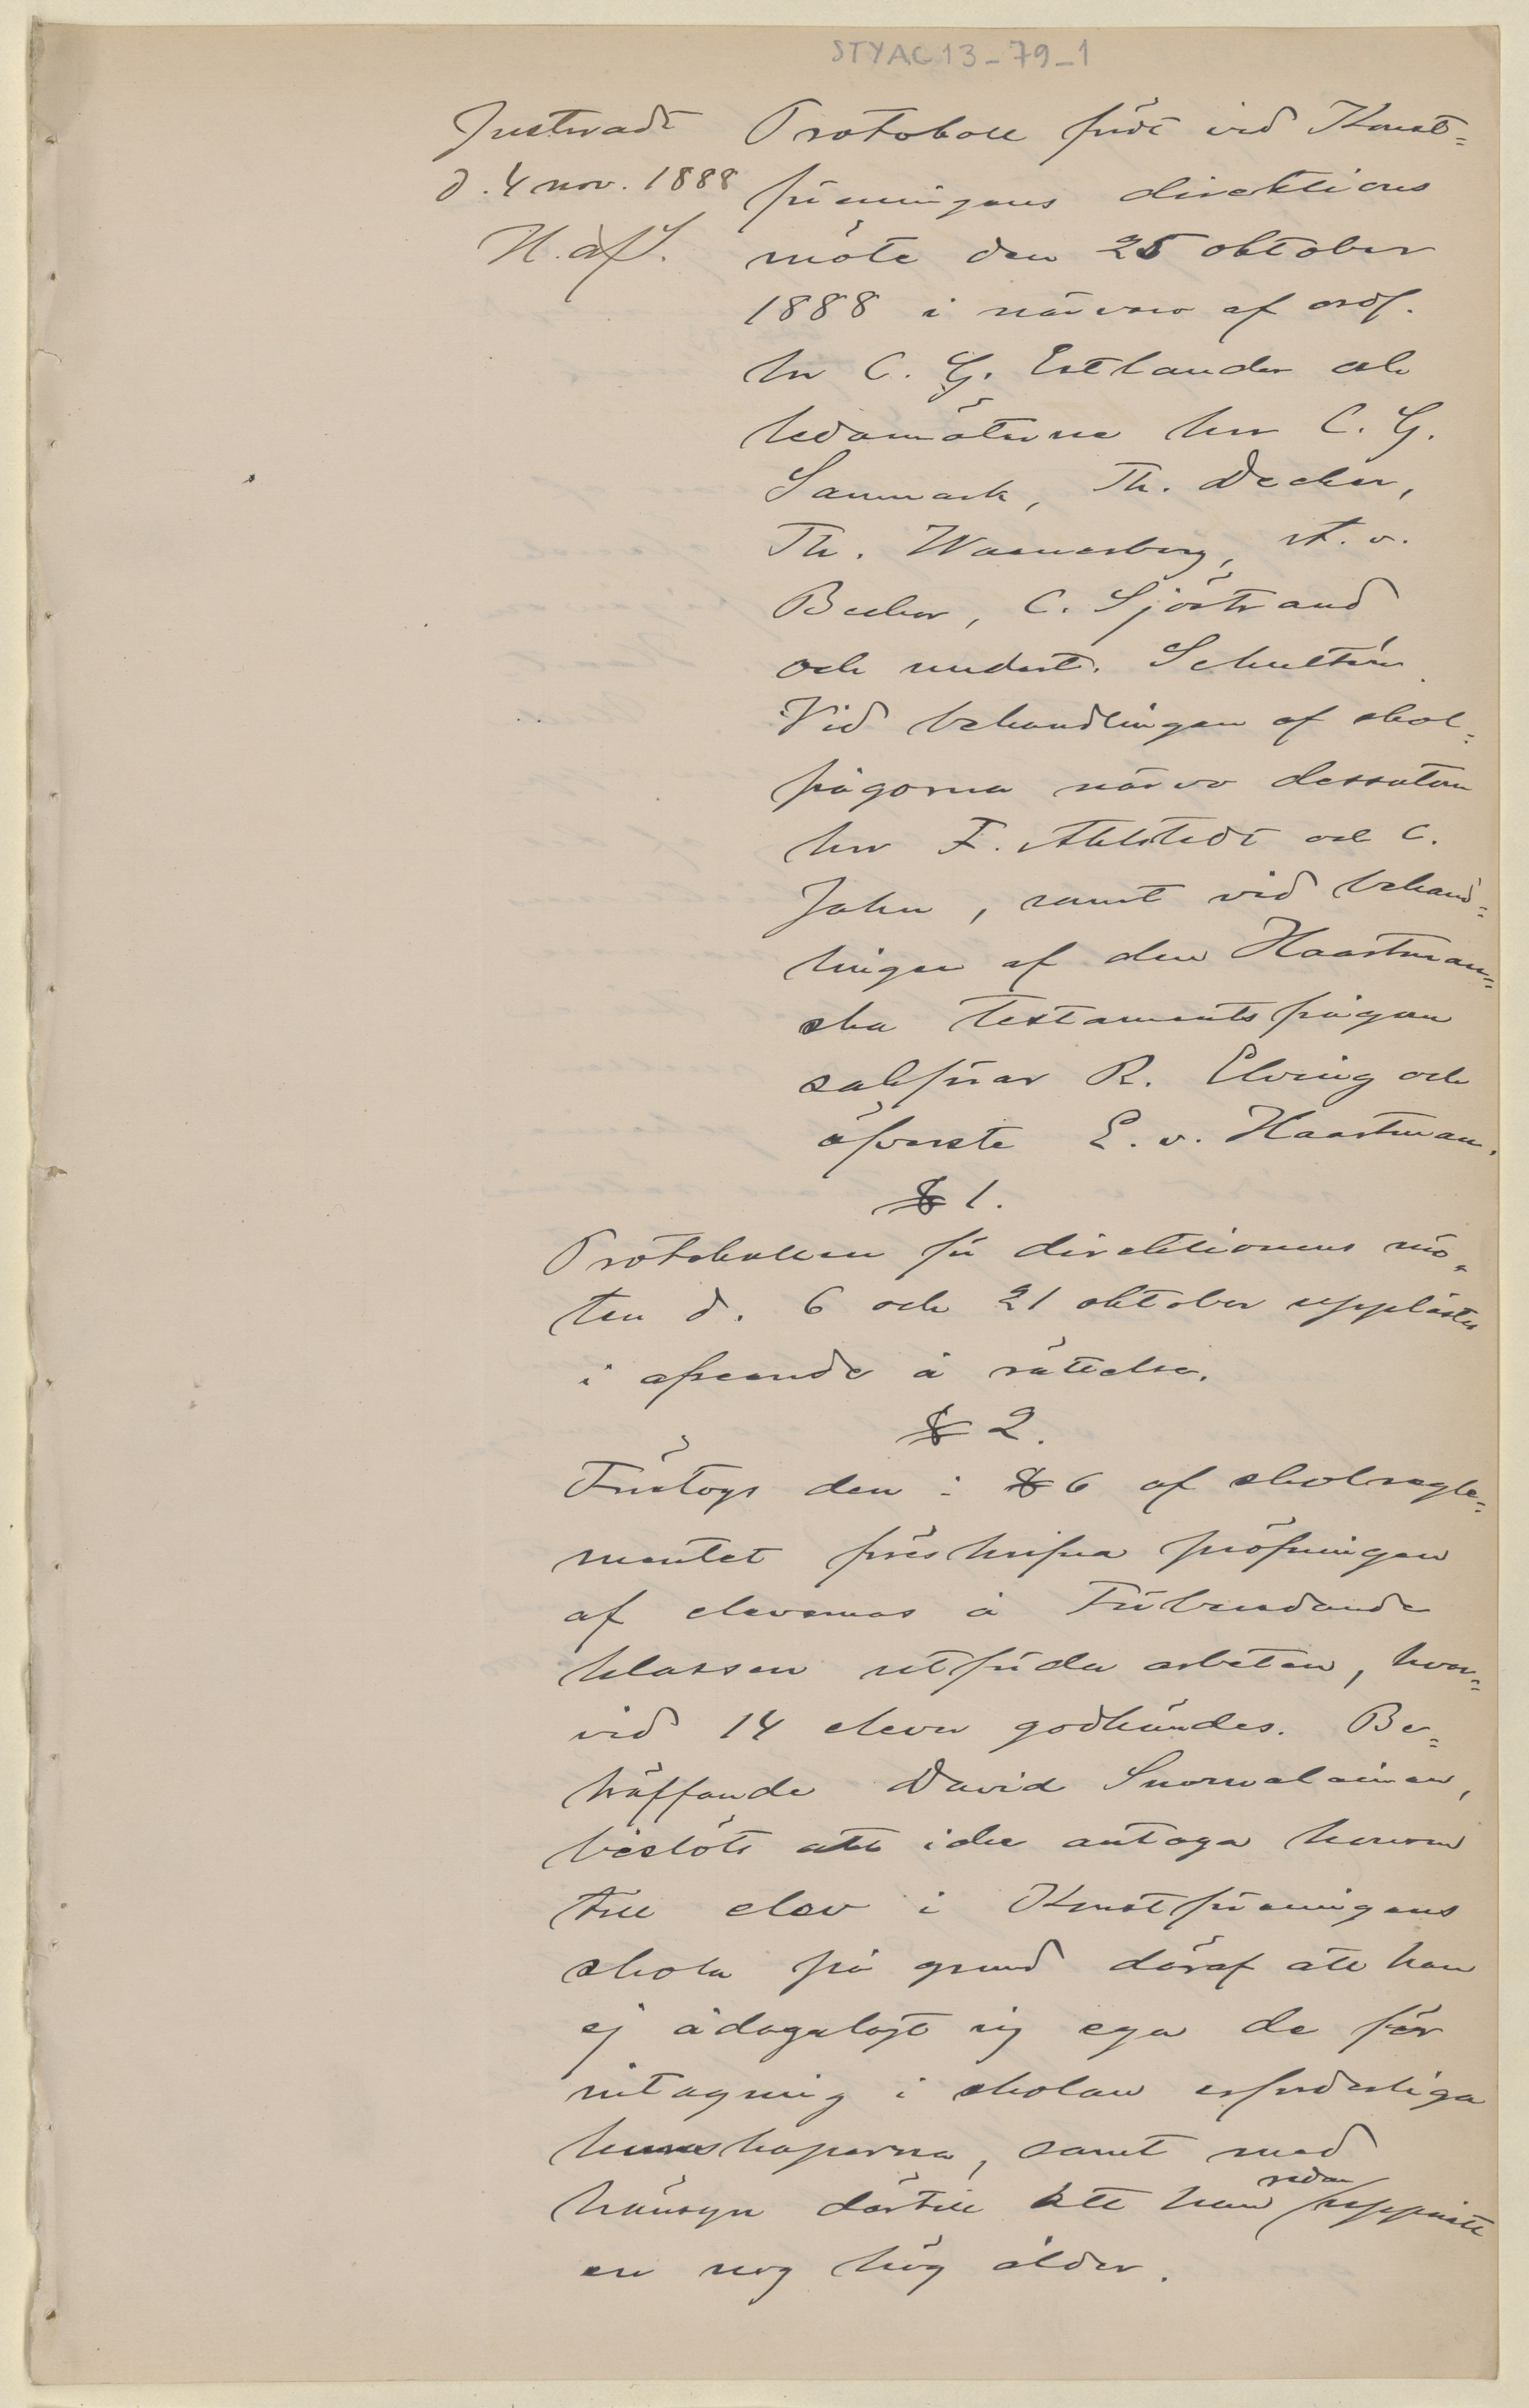 STYAC13_79_1
Justeradt
d. 4 nov. 1888
Protokoll fördt vid Konst=
föreningens direktions
möte den 25 oktober
1888 i närvaro af ordf.
hr C. G. Estlander och
ledamöterne hrr C. G.
Sanmark, Th. Decker,
Th. Waenerberg, A. v.
Becker, C. Sjöstrand
och undert. Schultén.
Vid behandlingen af skol=
frågorna närvo dessutom
hrr F. Ahlstedt och C.
Jahn, samt vid behand=
lingen af den Haartman=
ska testamentsfrågan
sakförar R. Elving och
öfverste E. v. Haartman.
§ 1.
Protokollen för direktionens mö=
ten d. 6 och 21 oktober upplästes
i afseende å rättelse.
§ 2.
Företogs den i § 6 af skolregle=
mentet föreskrifna pröfningen
af elevernas å Förberedande
klassen utförda arbeten, hvar=
vid 14 elever godkändes. Be=
träffande David Suowalainen,
beslöts att icke antaga honom
till elev i Konstföreningens
skola på grund däraf att han
ej ådagalagt sig ega de för
intagning i skolan erforderliga
kunskaperna, samt med
hänsyn därtill att han redan uppnått
en nog hög ålder.